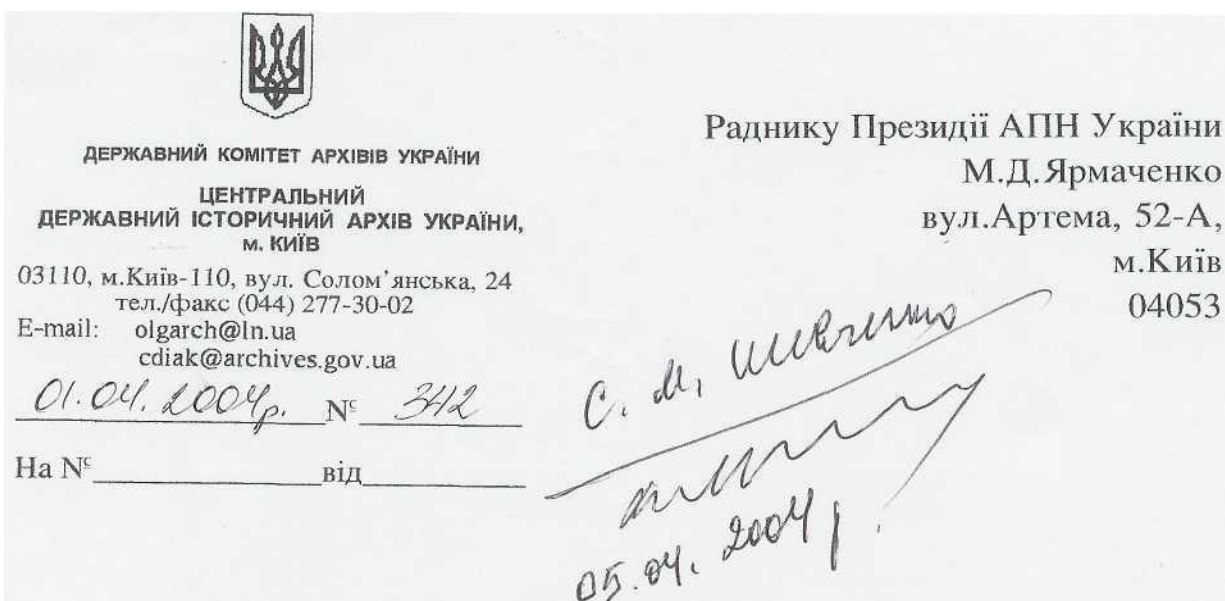 ДЕРЖАВНИЙ КОМІТЕТ АРХІВІВ УКРАЇНИ
ЦЕНТРАЛЬНИЙ
ДЕРЖАВНИЙ ІСТОРИЧНИЙ АРХІВ УКРАЇНИ,
м. КИЇВ
03110, м.Київ-110, вул. Солом’янська, 24
тел./факс (044) 277-30-02
E-mail: olgarch@ln.ua
cdiak@archives.gov.ua
01.04.2004р. № 342
На № від
Раднику Президії АПН України
М.Д.Ярмаченко
вул.Артема, 52-А,
м.Київ
04053
С. М.
05.04.2004 р.